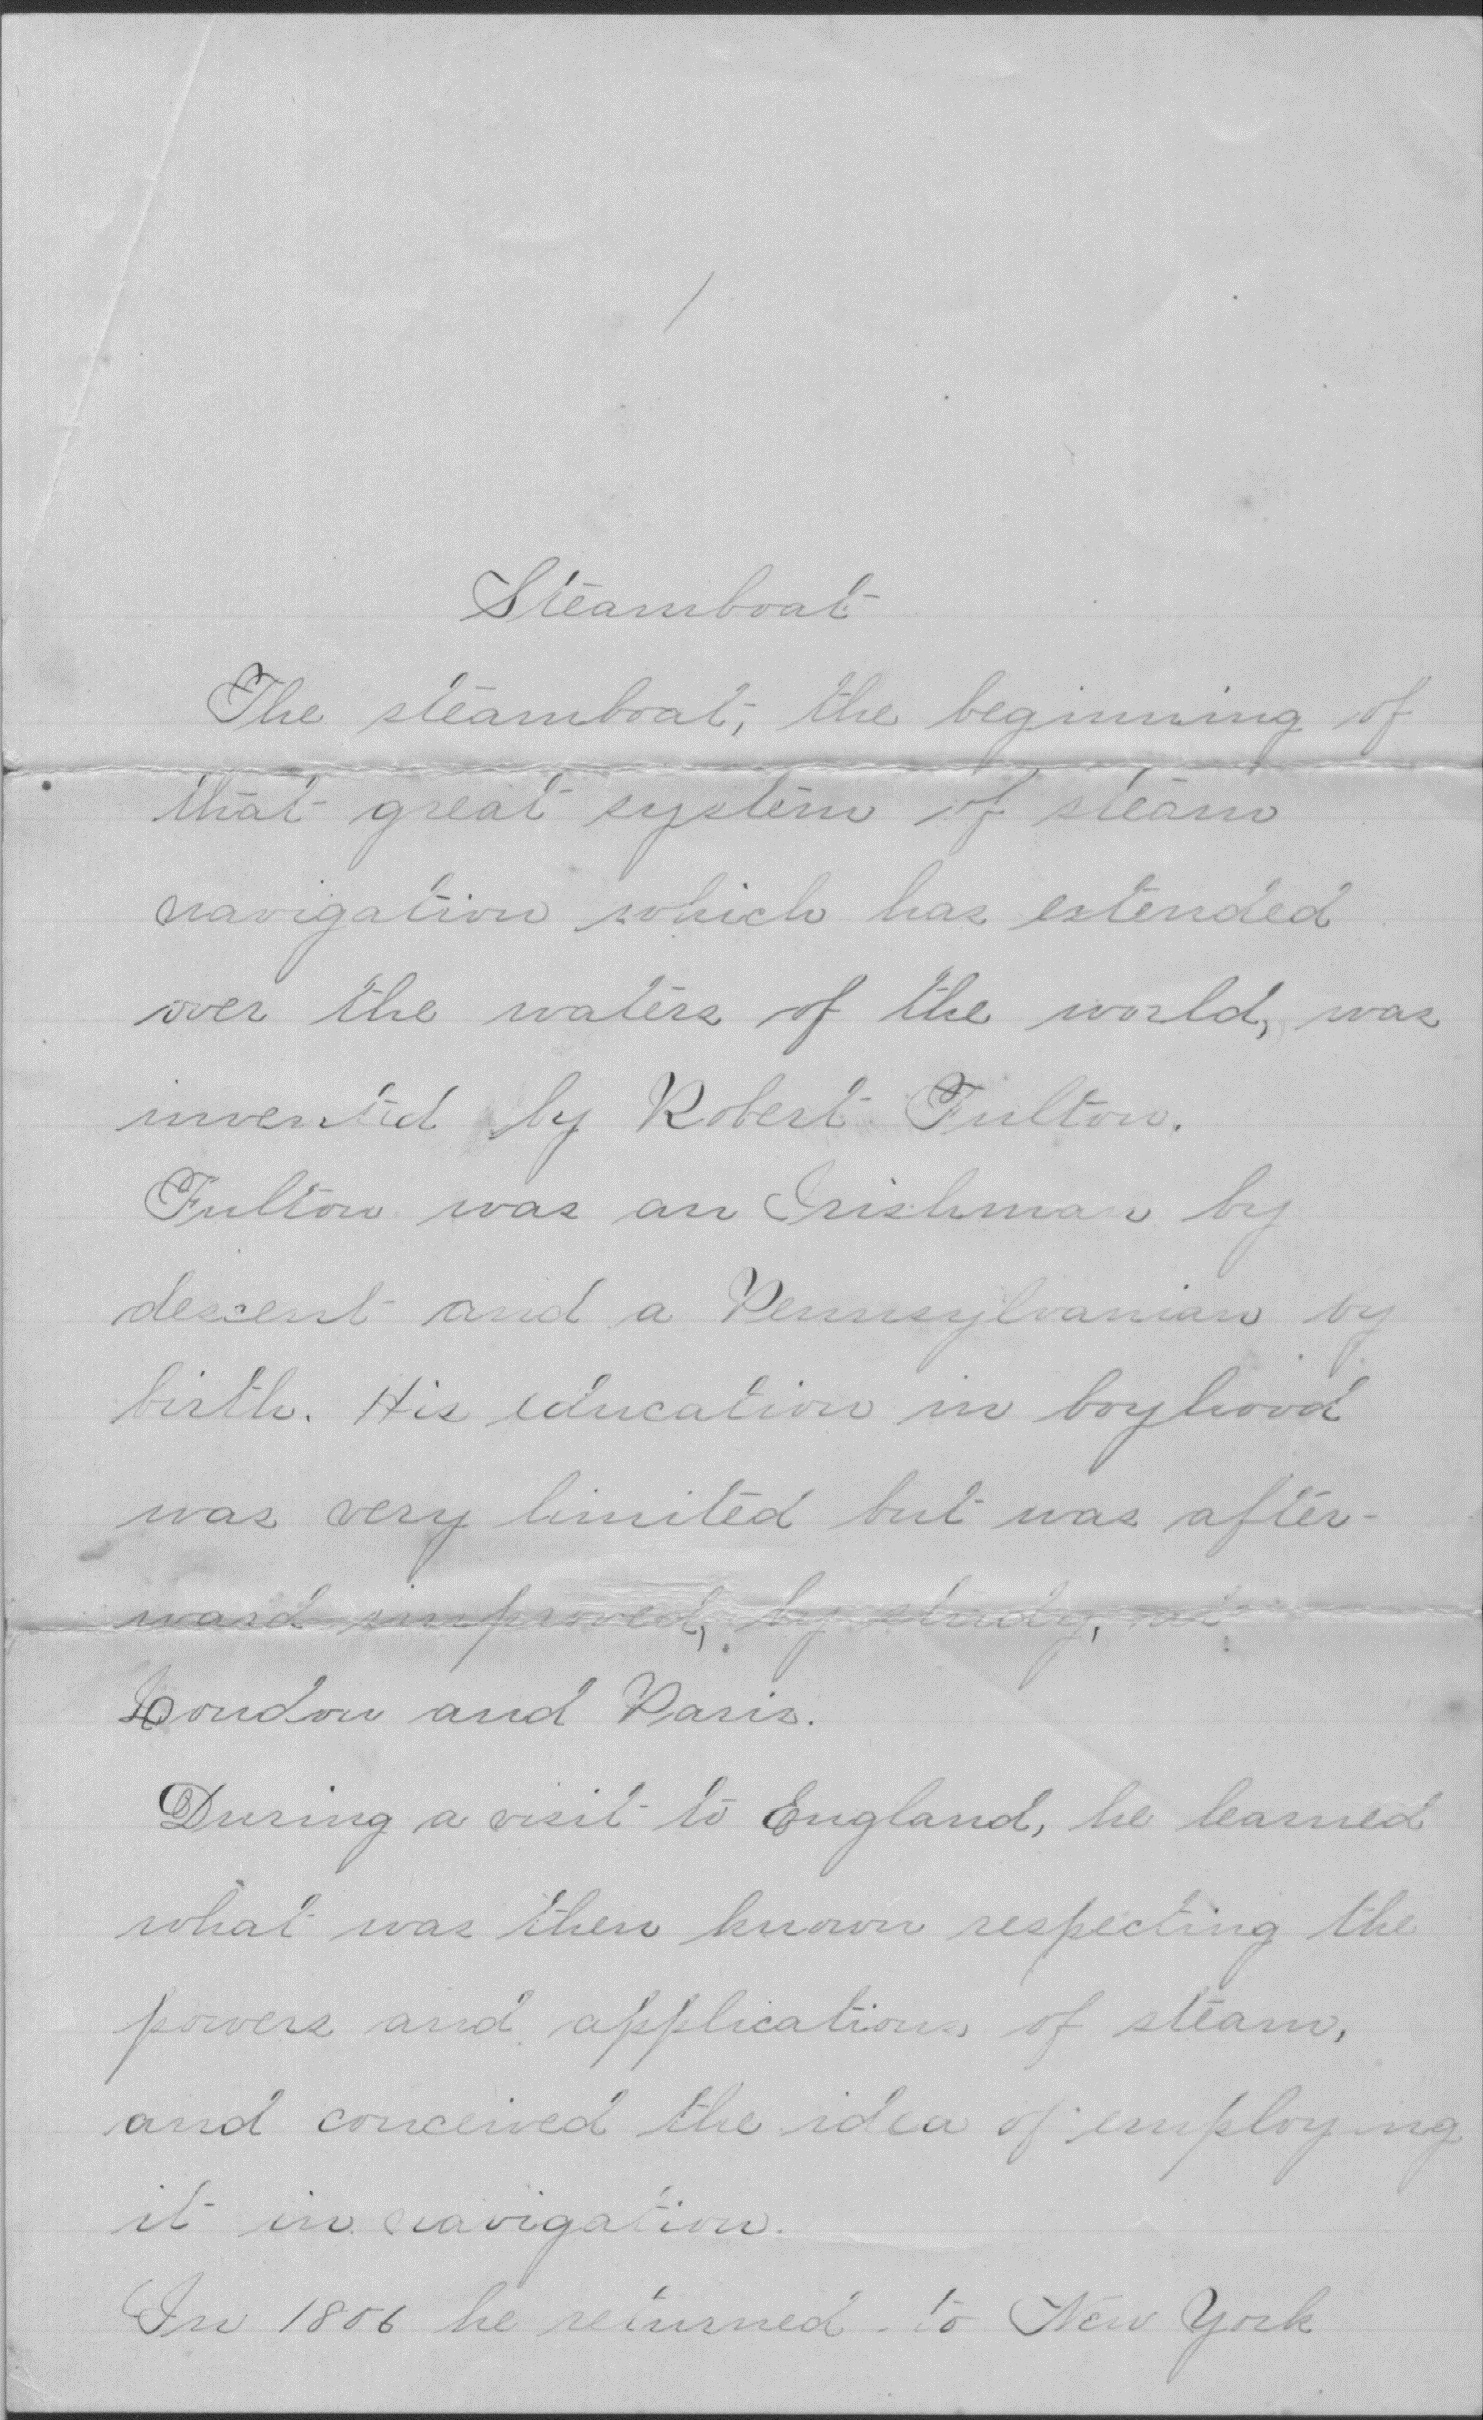 Steamboat
The steamboat, the beginning of
that great system of steam
navigation which has extended
over the waters of the world, was
invented by Robert Fulton.
Fulton was an Irishman by
descent and a Pennsylvanian by
birth. His education in boyhood
was very limited but was after-
ward improved, by study, at
London and Paris.
During a visit to England, he learned
what was then known respecting the
powers and applications of steam,
and conceived the idea of employing
it in navigation.
In 1806 he returned to New York